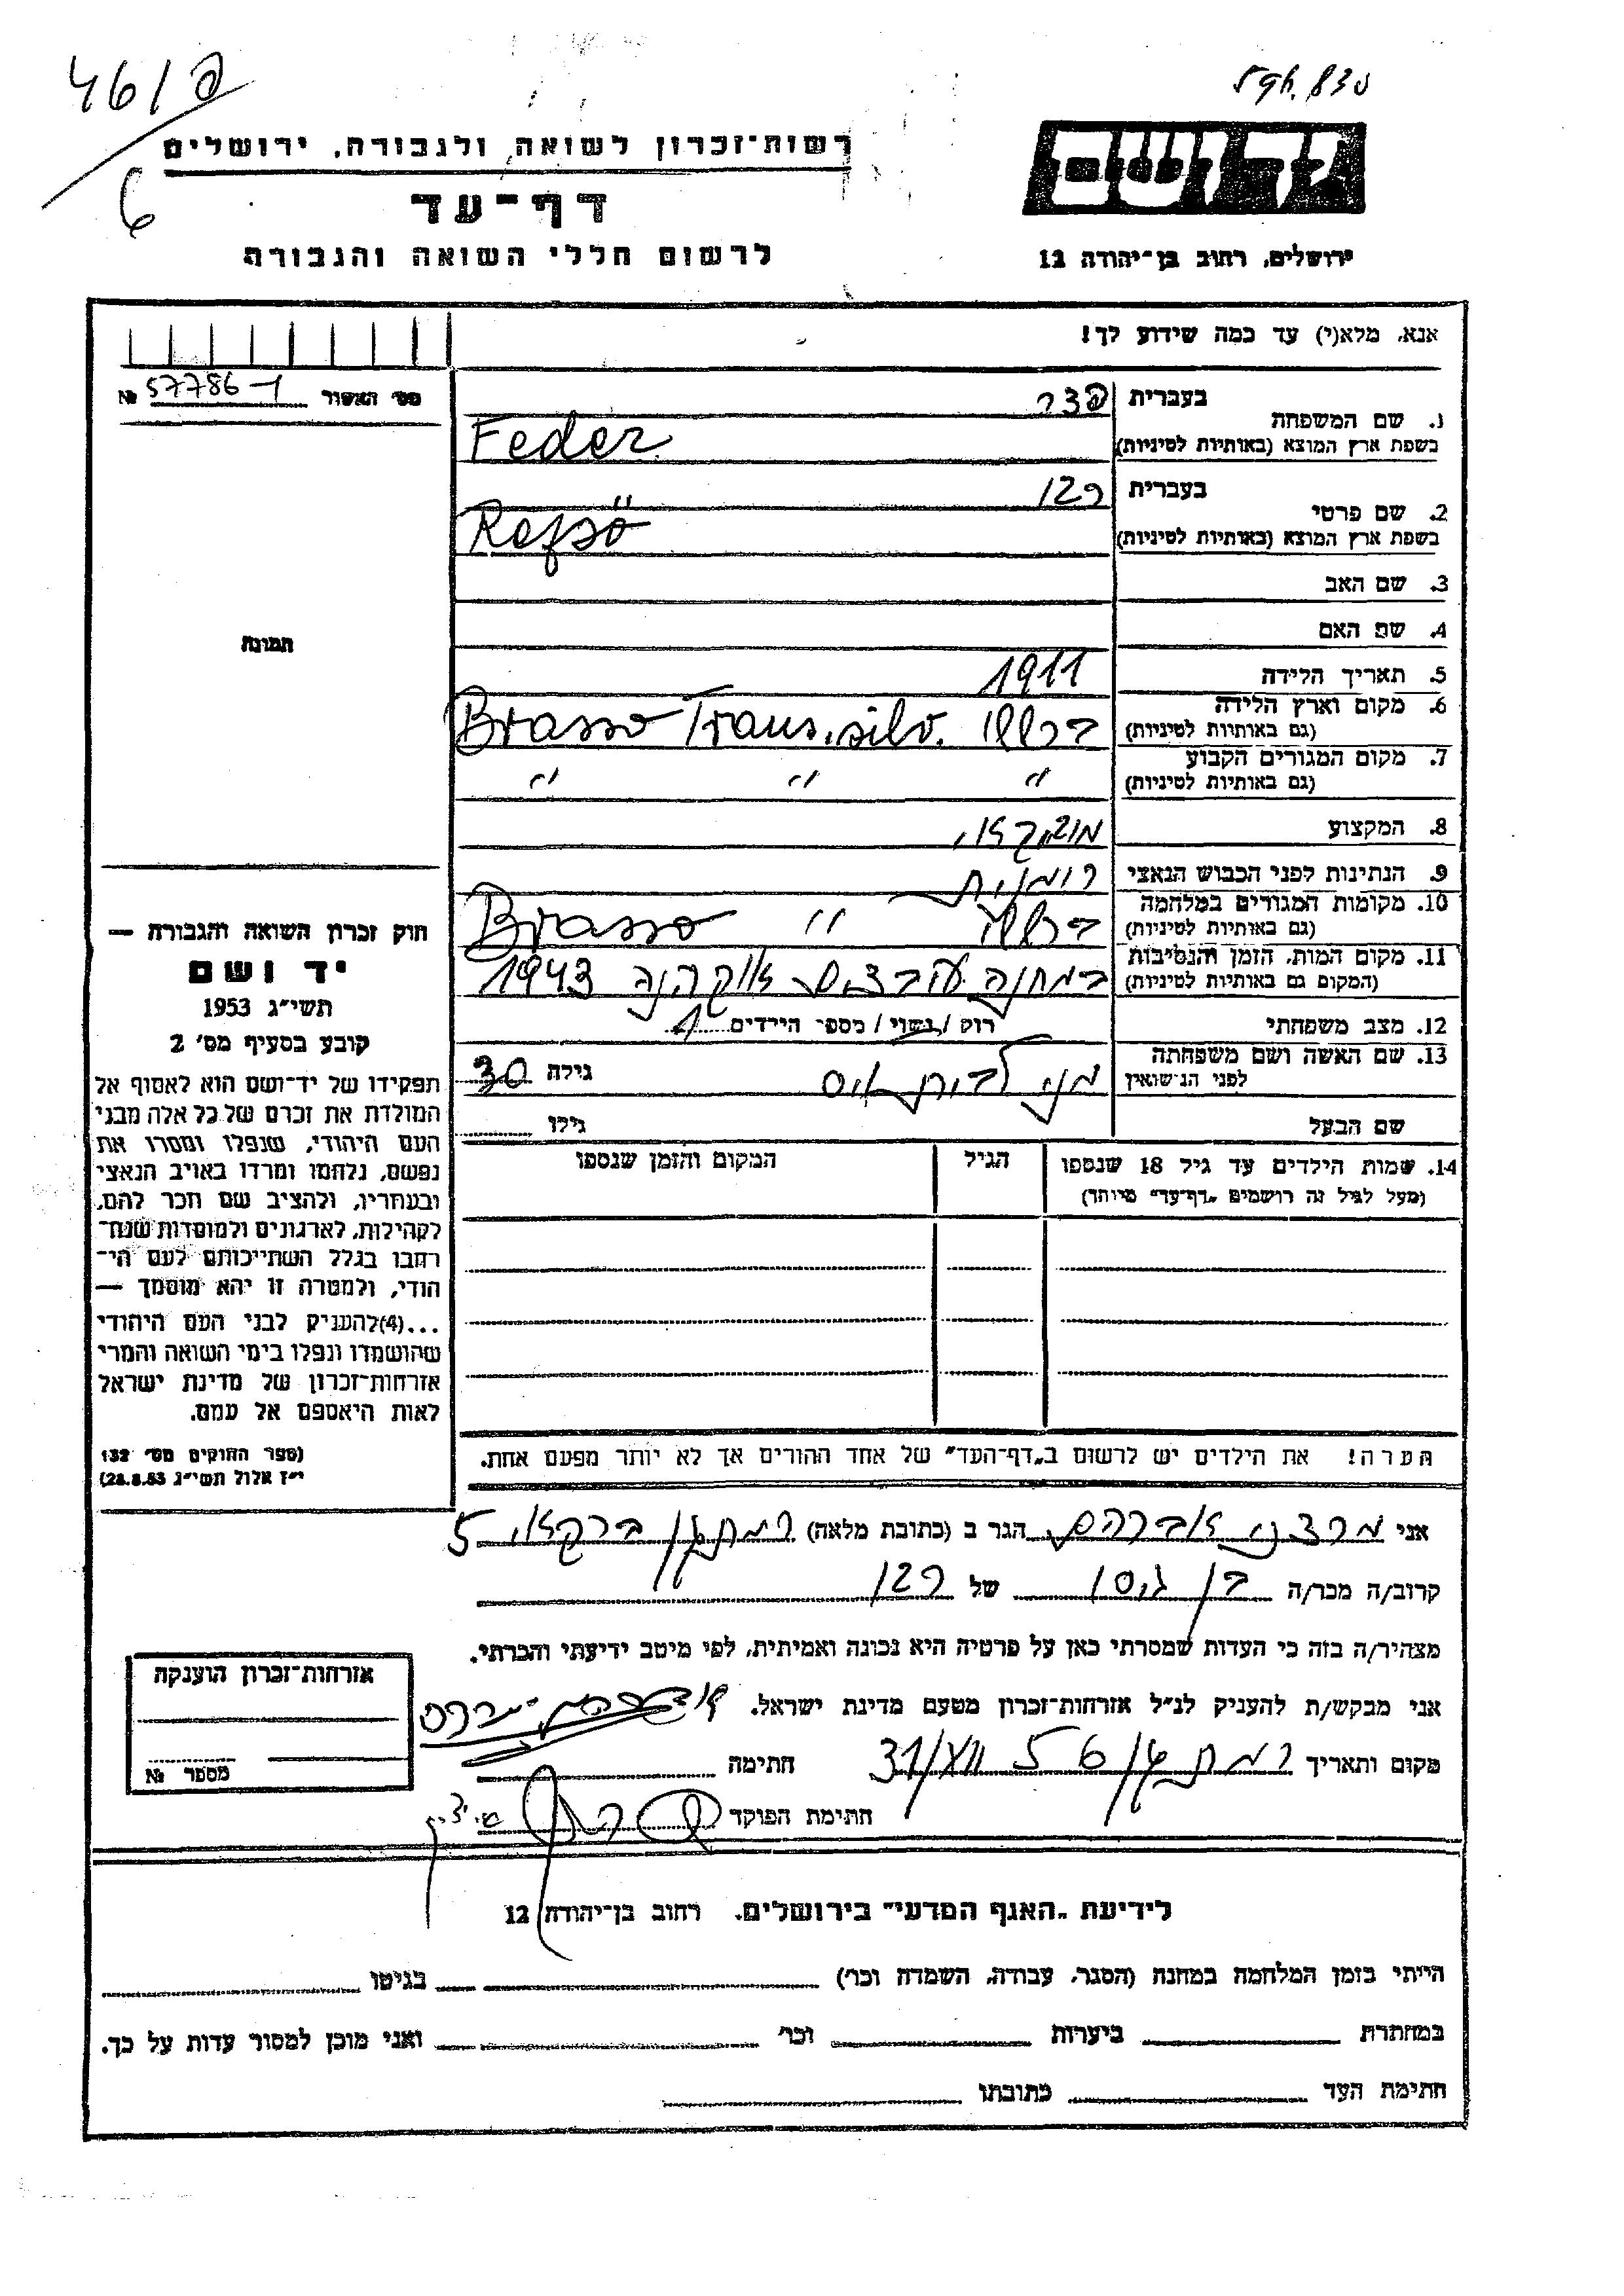 461/פ
6
יד ושם
רשות־זכרון לשואה ולגבורה, ירושלים
דף־עד
לרשום חללי השואה והגבורה
ירושלים, רחוב בן־יהודה 12
אנא, מלא(י) עד כמה שידוע לך!
מס׳ האשור № 57786-1
1. שם המשפחה
בעברית פדר
בשפת ארץ המוצא (באותיות לטיניות) Feder
2. שם פרטי
בעברית
בשפת ארץ המוצא (באותיות לטיניות)
3. שם האב
4. שם האם
5. תאריך הלידה 1911
6. מקום וארץ הלידה
(גם באותיות לטיניות) Brasso Trans.silv.
7. מקום המגורים הקבוע
(גם באותיות לטיניות) " " "
8. המקצוע
9. הנתינות לפני הכבוש הנאצי רומנית
10. מקומות המגורים במלחמה
(גם באותיות לטיניות) Brasso "
11. מקום המות, הזמן והנסיבות
(המקום גם באותיות לטיניות) במחנה עובדים אוקרינה 1943
12. מצב משפחתי רוק/נשוי/מספר הילדים 1
13. שם האשה ושם משפחתה
לפני הנישואין גילה 30
שם הבעל גילו
14. שמות הילדים עד גיל 18 שנספו
(מעל לגיל זה רושמים „דף־עד" מיוחד)
הגיל
המקום והזמן שנספו
הערה! את הילדים יש לרשום ב„דף־העד" של אחד ההורים אך לא יותר מפעם אחת.
תמונה
חוק זכרון השואה והגבורה —
יד ושם
תשי״ג 1953
קובע בסעיף מס׳ 2
תפקידו של יד־ושם הוא לאסוף אל
המולדת את זכרם של כל אלה מבני
העם היהודי, שנפלו ומסרו את
נפשם, נלחמו ומרדו באויב הנאצי
ובעוזריו, ולהציב שם וזכר להם,
לקהילות, לארגונים ולמוסדות שנח־
רבו בגלל השתייכותם לעם הי־
הודי, ולמטרה זו יהא מוסמך —
...(4)להעניק לבני העם היהודי
שהושמדו ונפלו בימי השואה והמרי
אזרחות־זכרון של מדינת ישראל
לאות היאספם אל עמם.
(ספר החוקים מס׳ 132
י״ז אלול תשי״ג 28.8.53)
אני אברהם הגר ב (כתובת מלאה) רמת גן 5
קרוב/ה מכר/ה בן גיסו של
מצהיר/ה בזה כי העדות שמסרתי כאן על פרטיה היא נכונה ואמיתית, לפי מיטב ידיעתי והכרתי.
אני מבקש/ת להעניק לנ״ל אזרחות־זכרון מטעם מדינת ישראל.
מקום ותאריך רמת גן חתימה
חתימת הפוקד
אזרחות־זכרון הוענקה
מספר №
לידיעת „האגף המדעי" בירושלים, רחוב בן־יהודה 12
הייתי בזמן המלחמה במחנה (הסגר, עבודה, השמדה וכו׳) בגיטו
במחתרת ביערות וכו׳ ואני מוכן למסור עדות על כך.
חתימת העד כתובתו